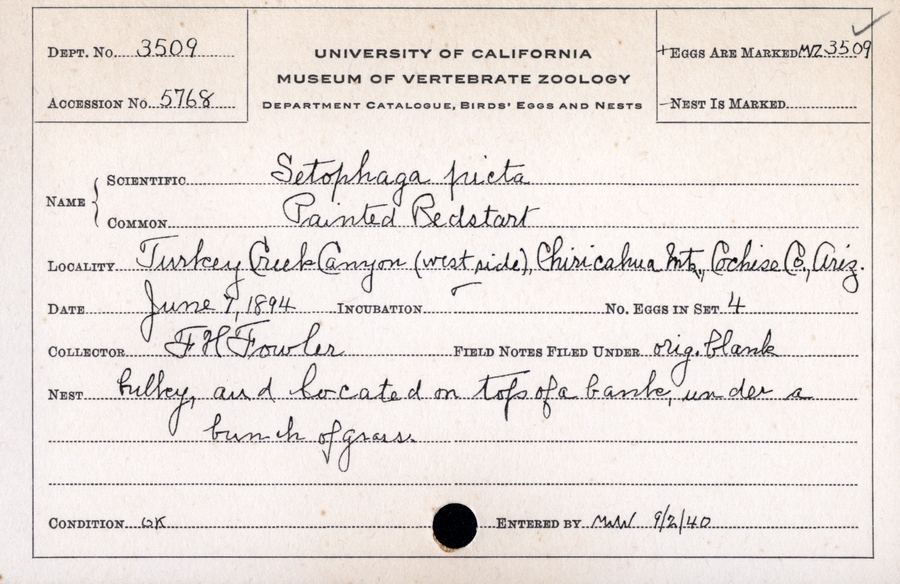 DEPT. No. 3509
UNIVERSITY OF CALIFORNIA
MUSEUM OF VERTEBRATE ZOOLOGY
DEPARTMENT CATALOGUE, BIRDS' EGGS AND NESTS
+EGGS ARE MARKED MVZ 3509
ACCESSION No. 5768
–NEST IS MARKED
NAME
SCIENTIFIC Setophaga picta
COMMON Painted Redstart
LOCALITY Turkey Creek Canyon (west side), Chiricahua Mts., Cochise Co., Ariz.
DATE June 7, 1894 INCUBATION – No. EGGS IN SET 4
COLLECTOR F H Fowler FIELD NOTES FILED UNDER orig. blank
NEST bulky, and located on top of a bank, under a
bunch of grass.
CONDITION OK ENTERED BY 9/2/40